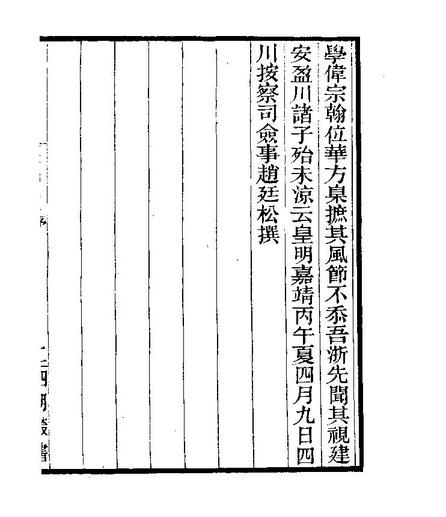 學偉宗翰位華方臬摭其風節不忝吾浙先聞其視建
安盈川諸子殆未涼云皇明嘉靖丙午夏四月九日四
川按察司僉事趙廷松撰
四明叢書